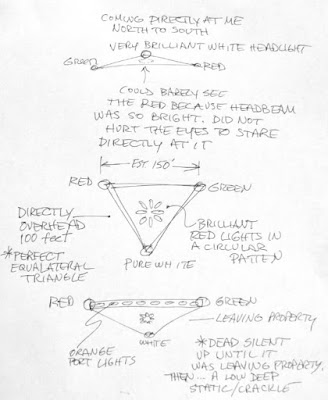 COMING DIRECTLY AT ME
NORTH TO SOUTH
VERY BRILLIANT WHITE HEADLIGHT
GREEN
RED
COULD BARELY SEE
THE RED BECAUSE HEADBEAM
WAS SO BRIGHT. DID NOT
HURT THE EYES TO STARE
DIRECTLY AT IT
EST 150'
RED
GREEN
DIRECTLY
OVERHEAD
100 feet
*PERFECT
EQUALATERAL
TRIANGLE
BRILLIANT
RED LIGHTS IN
A CIRULAR
PATTEN
PURE WHITE
RED
GREEN
LEAVING PROPERTY
ORANGE
PORT LIGHTS
WHITE
*DEAD SILENT
UP UNTIL IT
WAS LEAVING PROPERTY.
THEN... A LOW DEEP
STATIC/CRACKLE